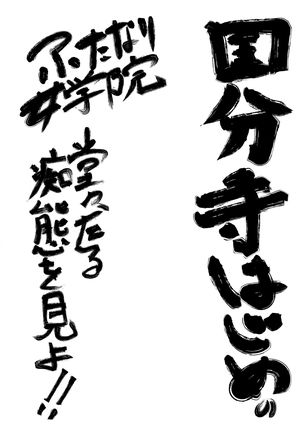 国分寺はじめ。
ふたなり
女学院
堂々たる
痴態を見よ!!